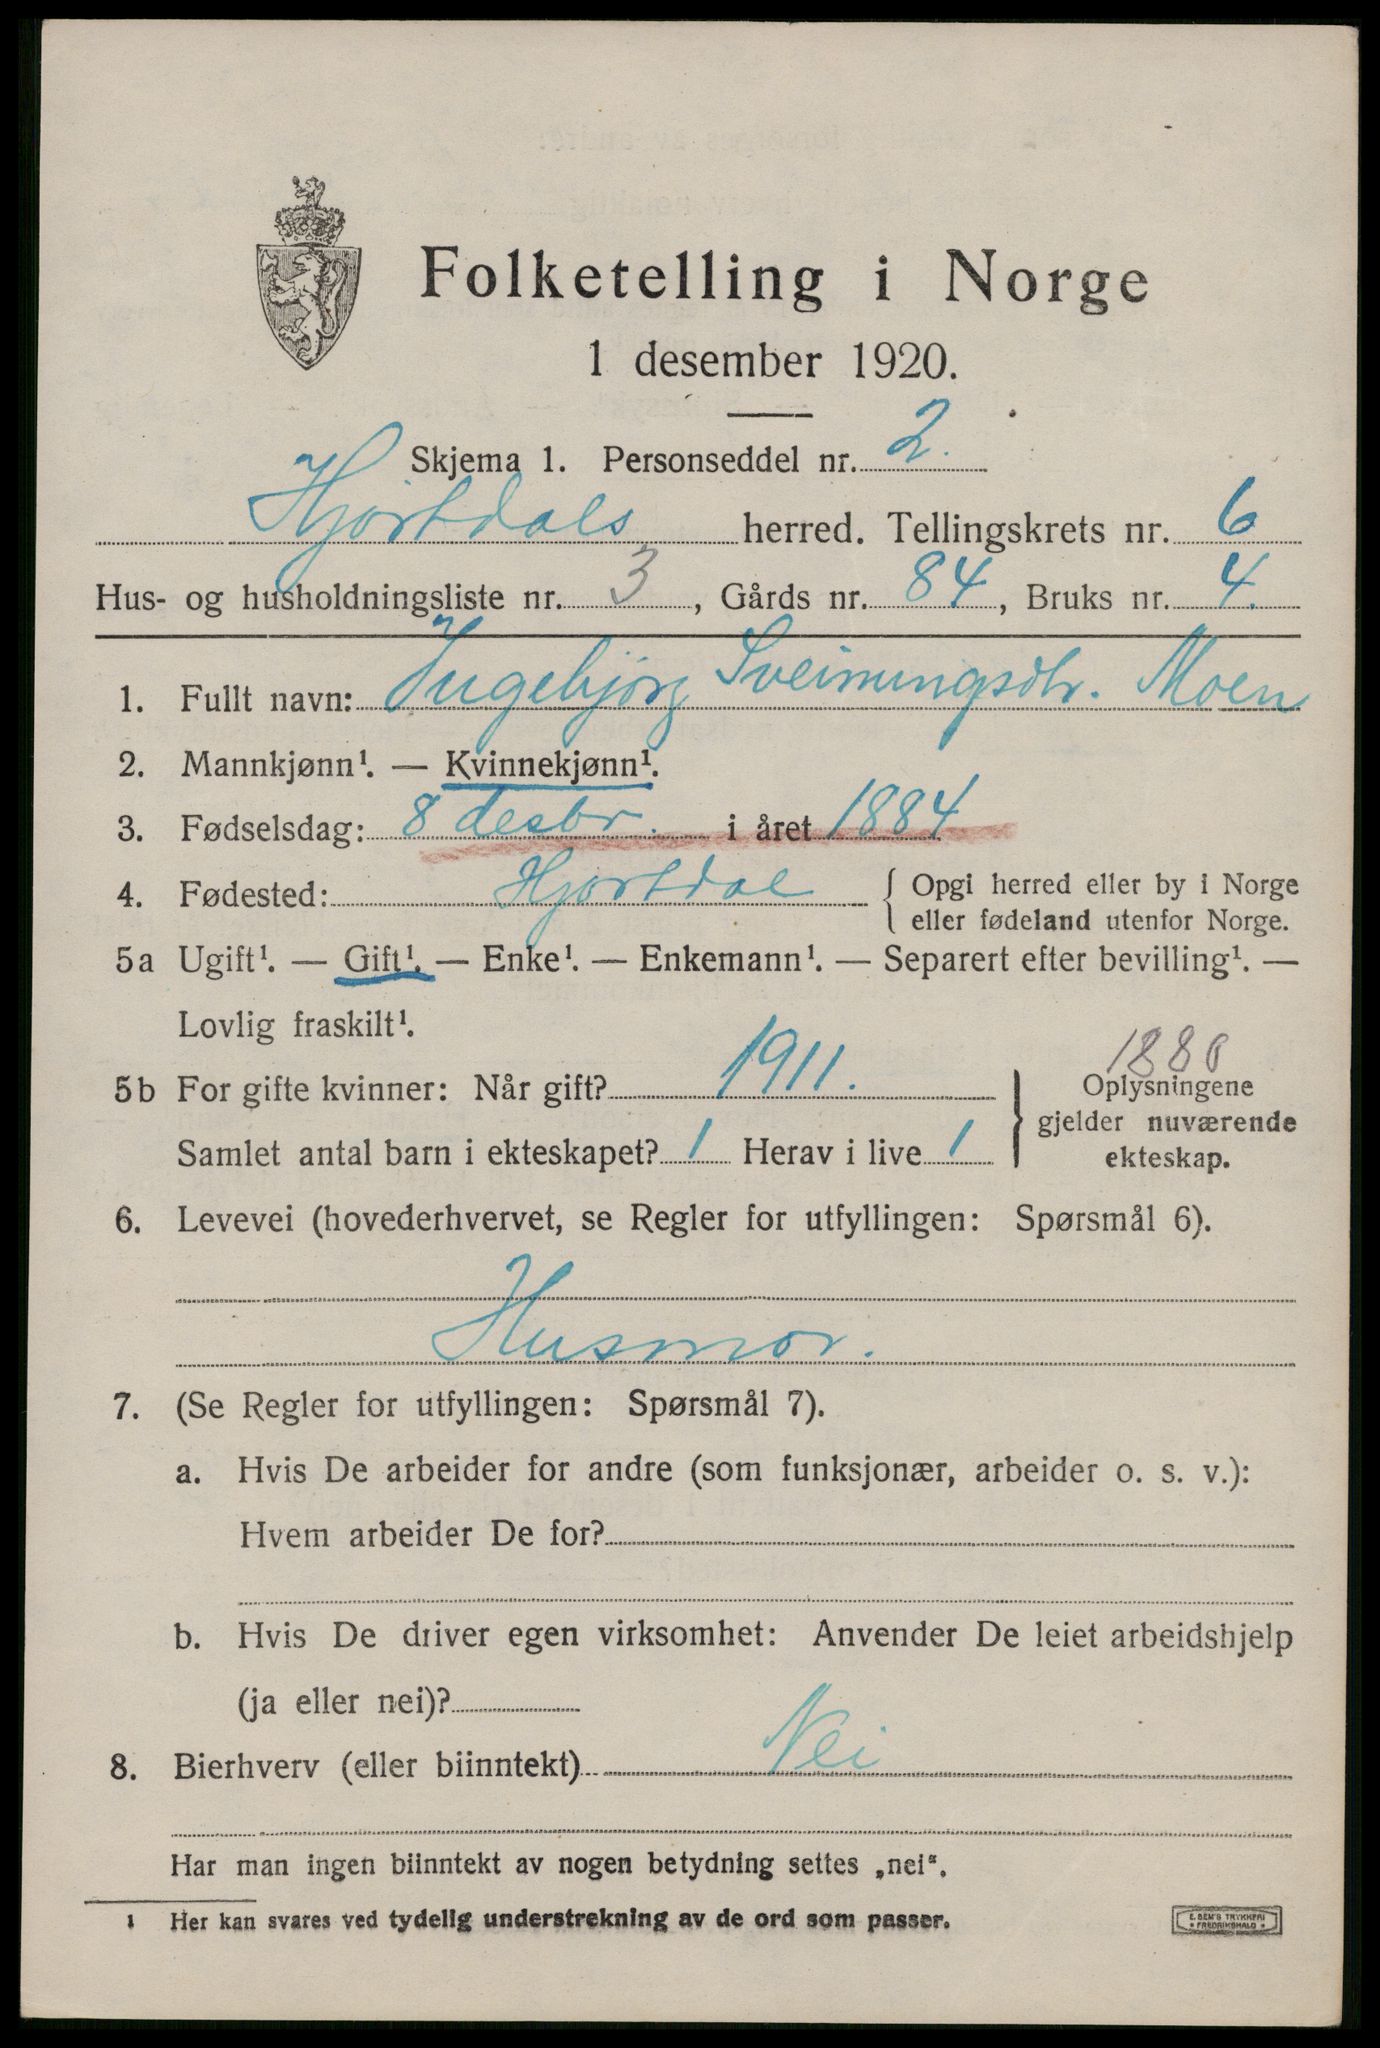 Folketelling i Norge
1 desember 1920.
Skjema 1. Personseddel nr. 2.
Hjortdals herred. Tellingskrets nr. 6
Hus- og husholdningsliste nr. 3, Gårds nr. 84, Bruks nr. 4.
1. Fullt navn: Ingebjørg Sveinungsdtr. Moen
2. Mannkjønn¹. — Kvinnekjønn¹.
3. Fødselsdag: 8 desbr. i året 1884
4. Fødested: Hjortdal { Opgi herred eller by i Norge
eller fødeland utenfor Norge.
5a Ugift¹. — Gift¹. — Enke¹. — Enkemann¹. — Separert efter bevilling¹. —
Lovlig fraskilt¹.
1880
5b For gifte kvinner: Når gift? 1911. } Oplysningene
gjelder nuværende
Samlet antal barn i ekteskapet? 1 Herav i live 1 ekteskap.
6. Levevei (hovederhvervet, se Regler for utfyllingen: Spørsmål 6).
Husmor.
7. (Se Regler for utfyllingen: Spørsmål 7).
a. Hvis De arbeider for andre (som funksjonær, arbeider o. s. v.):
Hvem arbeider De for?
b. Hvis De driver egen virksomhet: Anvender De leiet arbeidshjelp
(ja eller nei)?
8. Bierhverv (eller biinntekt) Nei
Har man ingen biinntekt av nogen betydning settes „nei".
1 Her kan svares ved tydelig understrekning av de ord som passer.
E. SEM'S TRYKKERI
FREDRIKSHALD